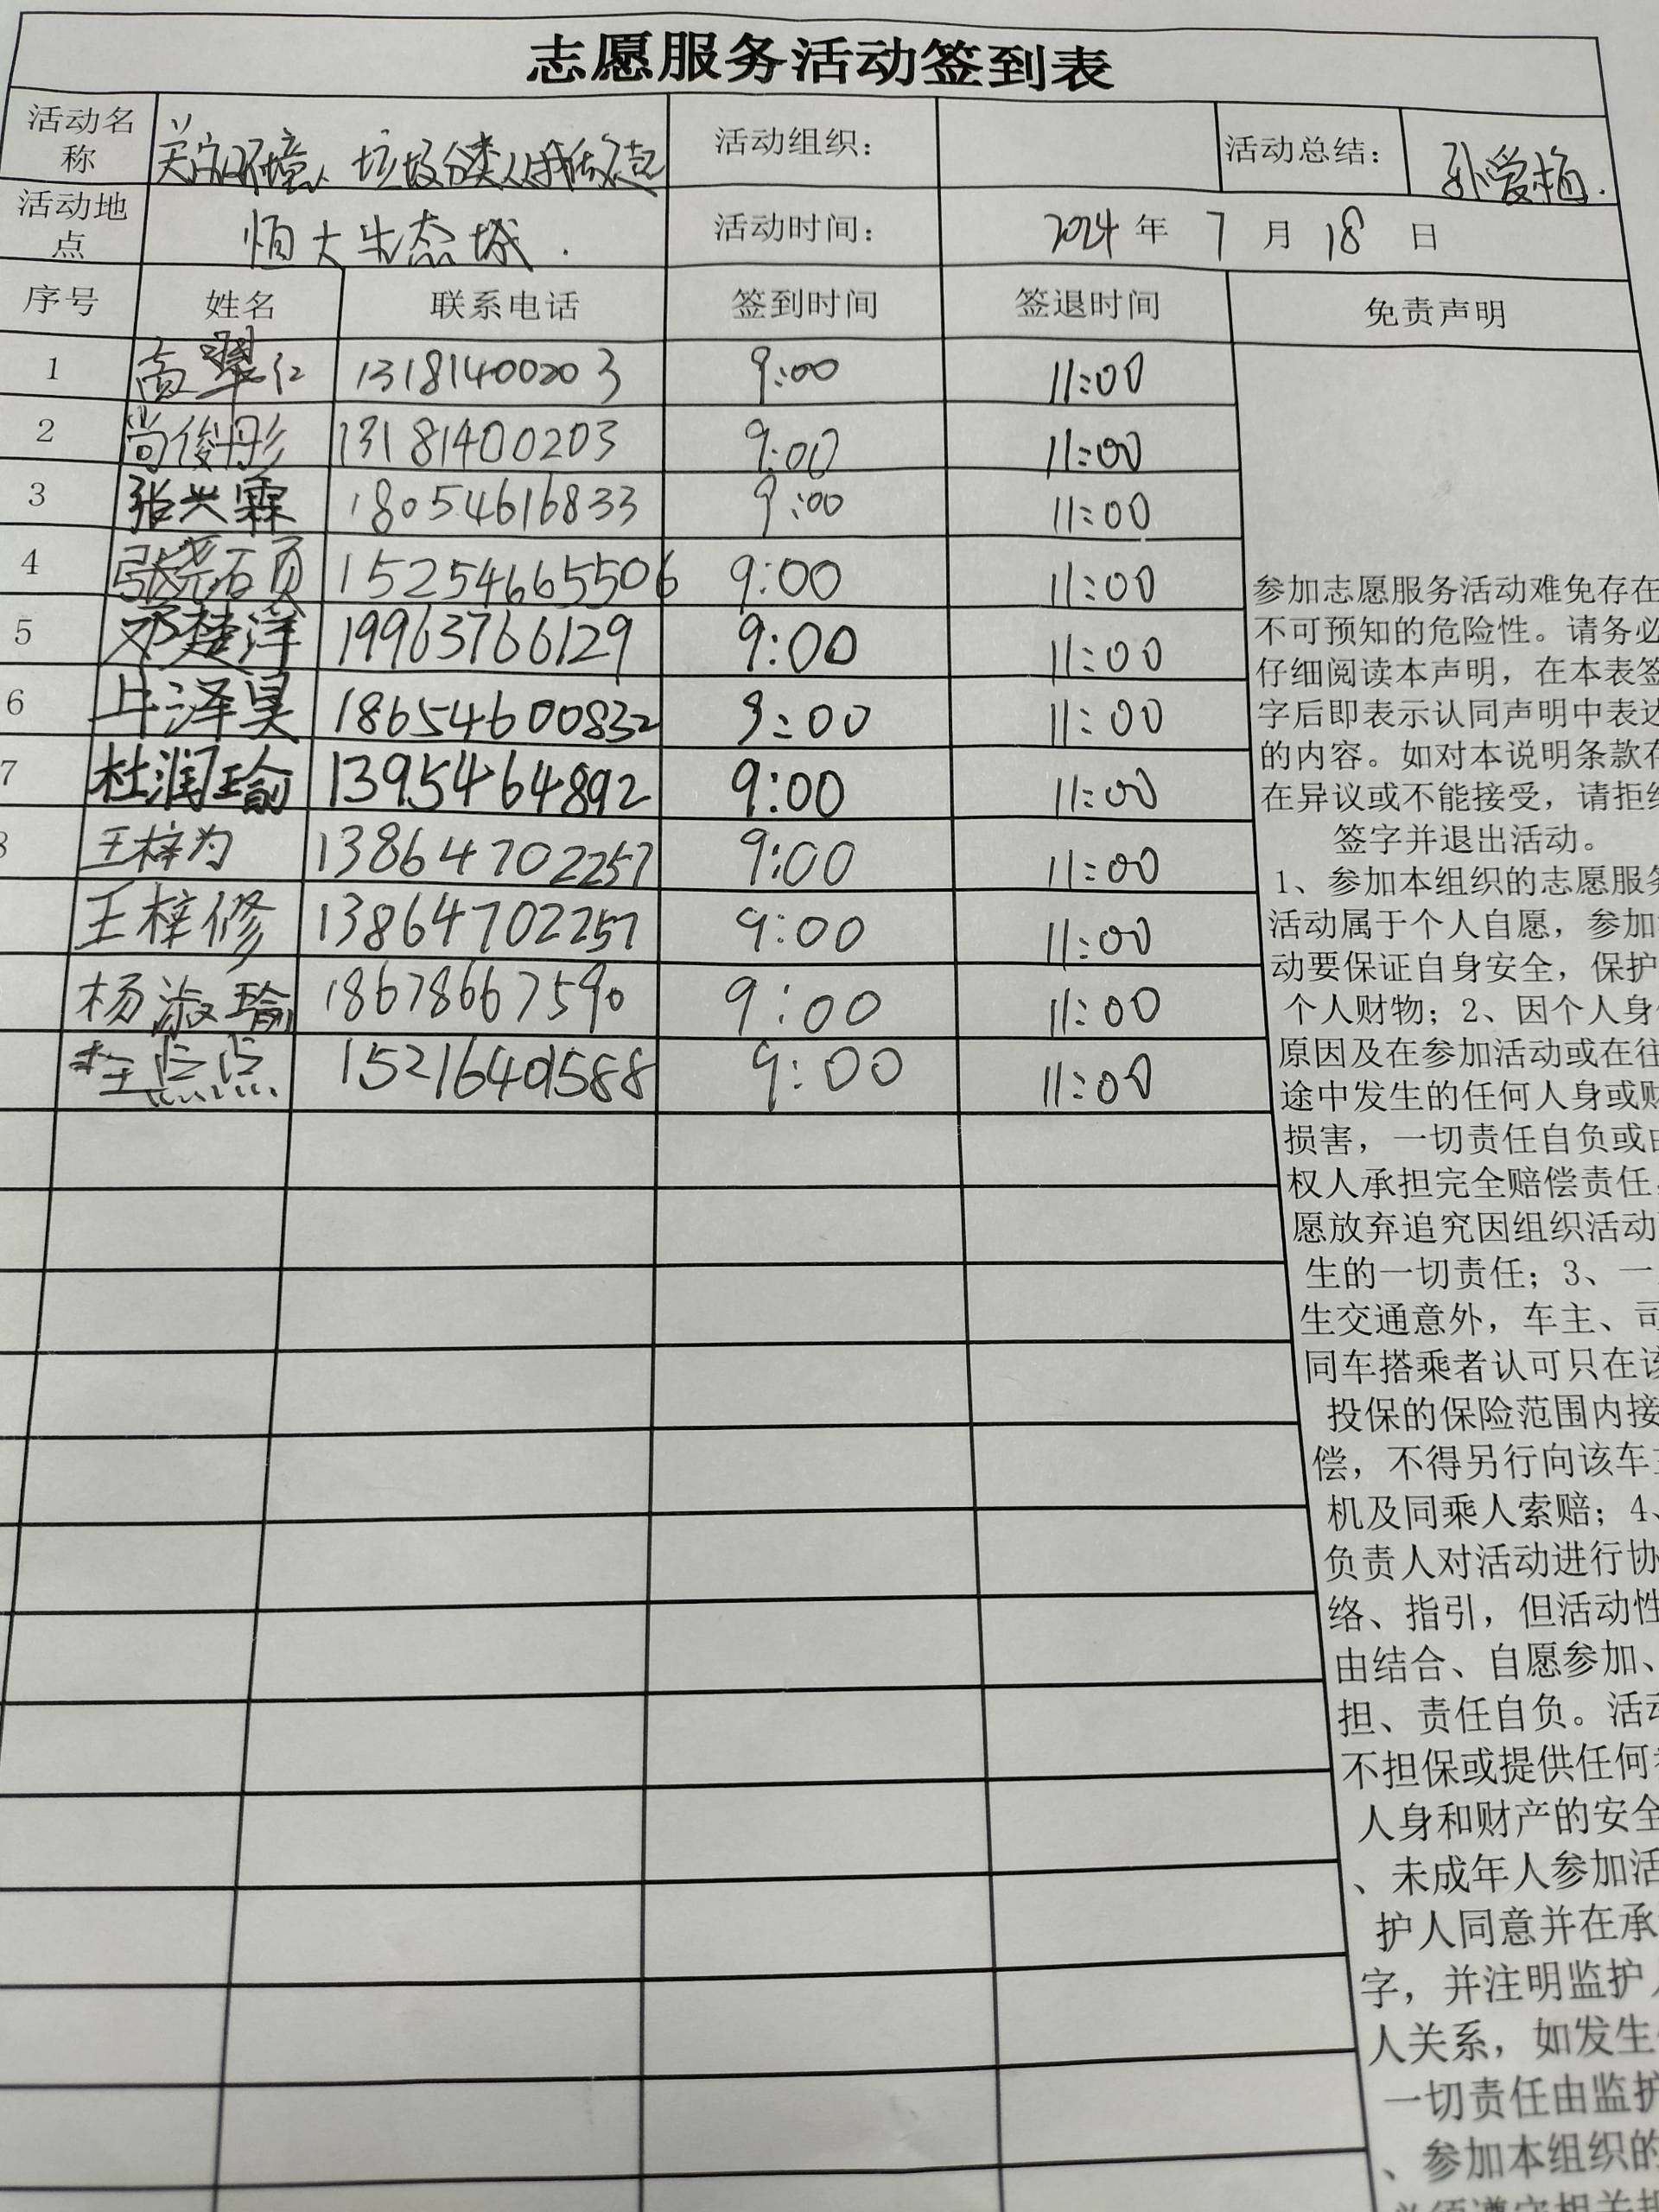 志愿服务活动签到表
活动名称 关 环境、垃圾分类从我做起 活动组织： 活动总结： 孙爱梅.
活动地点 恒大生态城. 活动时间： 2024 年 7 月 18 日
序号 姓名 联系电话 签到时间 签退时间 免责声明
1 13181400203 9:00 11:00
2 尚俊彤 13181400203 9:00 11:00
3 张兴霖 18054616833 9:00 11:00
4 15254665506 9:00 11:00
5 邓楚洋 19963766129 9:00 11:00
6 泽昊 18654600832 9:00 11:00
7 杜润瑜 1395464892 9:00 11:00
王梓为 13864702257 9:00 11:00
王梓修 13864702257 9:00 11:00
杨淑瑜 18678667590 9:00 11:00
点点 15216401588 9:00 11:00
参加志愿服务活动难免存在
不可预知的危险性。请务必
仔细阅读本声明，在本表签
字后即表示认同声明中表达
的内容。如对本说明条款存
在异议或不能接受，请拒绝
签字并退出活动。
1、参加本组织的志愿服务
活动属于个人自愿，参加
动要保证自身安全，保护
个人财物；2、因个人身
原因及在参加活动或在往
途中发生的任何人身或财
损害，一切责任自负或由
权人承担完全赔偿责任，
愿放弃追究因组织活动
生的一切责任；3、一
生交通意外，车主、司
同车搭乘者认可只在该
投保的保险范围内接
偿，不得另行向该车主
机及同乘人索赔；4、
负责人对活动进行协
络、指引，但活动性
由结合、自愿参加、
担、责任自负。活动
不担保或提供任何
人身和财产的安全
、未成年人参加活
护人同意并在承
字，并注明监护
人关系，如发生
一切责任由监护
、参加本组织的
必须遵守相关